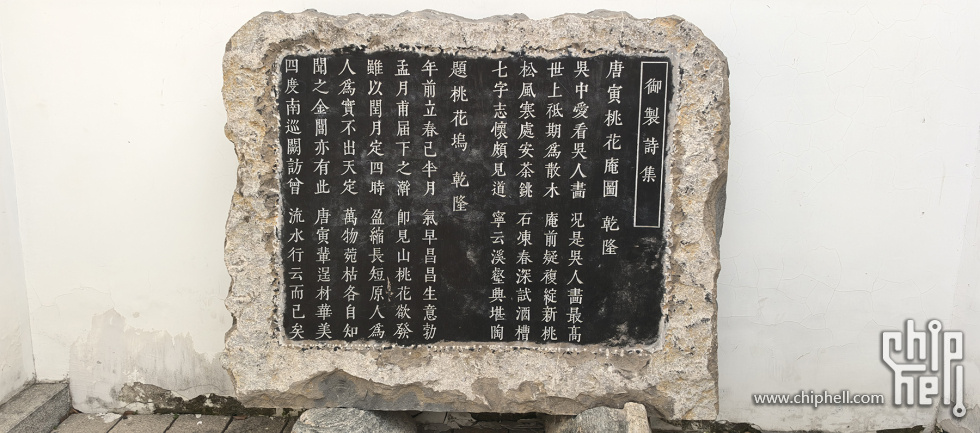 御製詩集
唐寅桃花庵圖 乾隆
吳中愛看吳人畵 況是吳人畵最高
世上祇期爲散木 庵前疑複綻新桃
松風寒處安茶銚 石凍春深試酒槽
七字志懷頗見道 寧云溪壑興堪陶
題桃花塢 乾隆
年前立春已半月 氣早昌昌生意勃
孟月甫届下之澣 卽見山桃花欲發
雖以閏月定四時 盈縮長短原人爲
人爲實不出天定 萬物菀枯各自知
聞之金閶亦有此 唐寅輩逞材華美
四度南巡闕訪曾 流水行云而已矣
chip
hell
www.chiphell.com